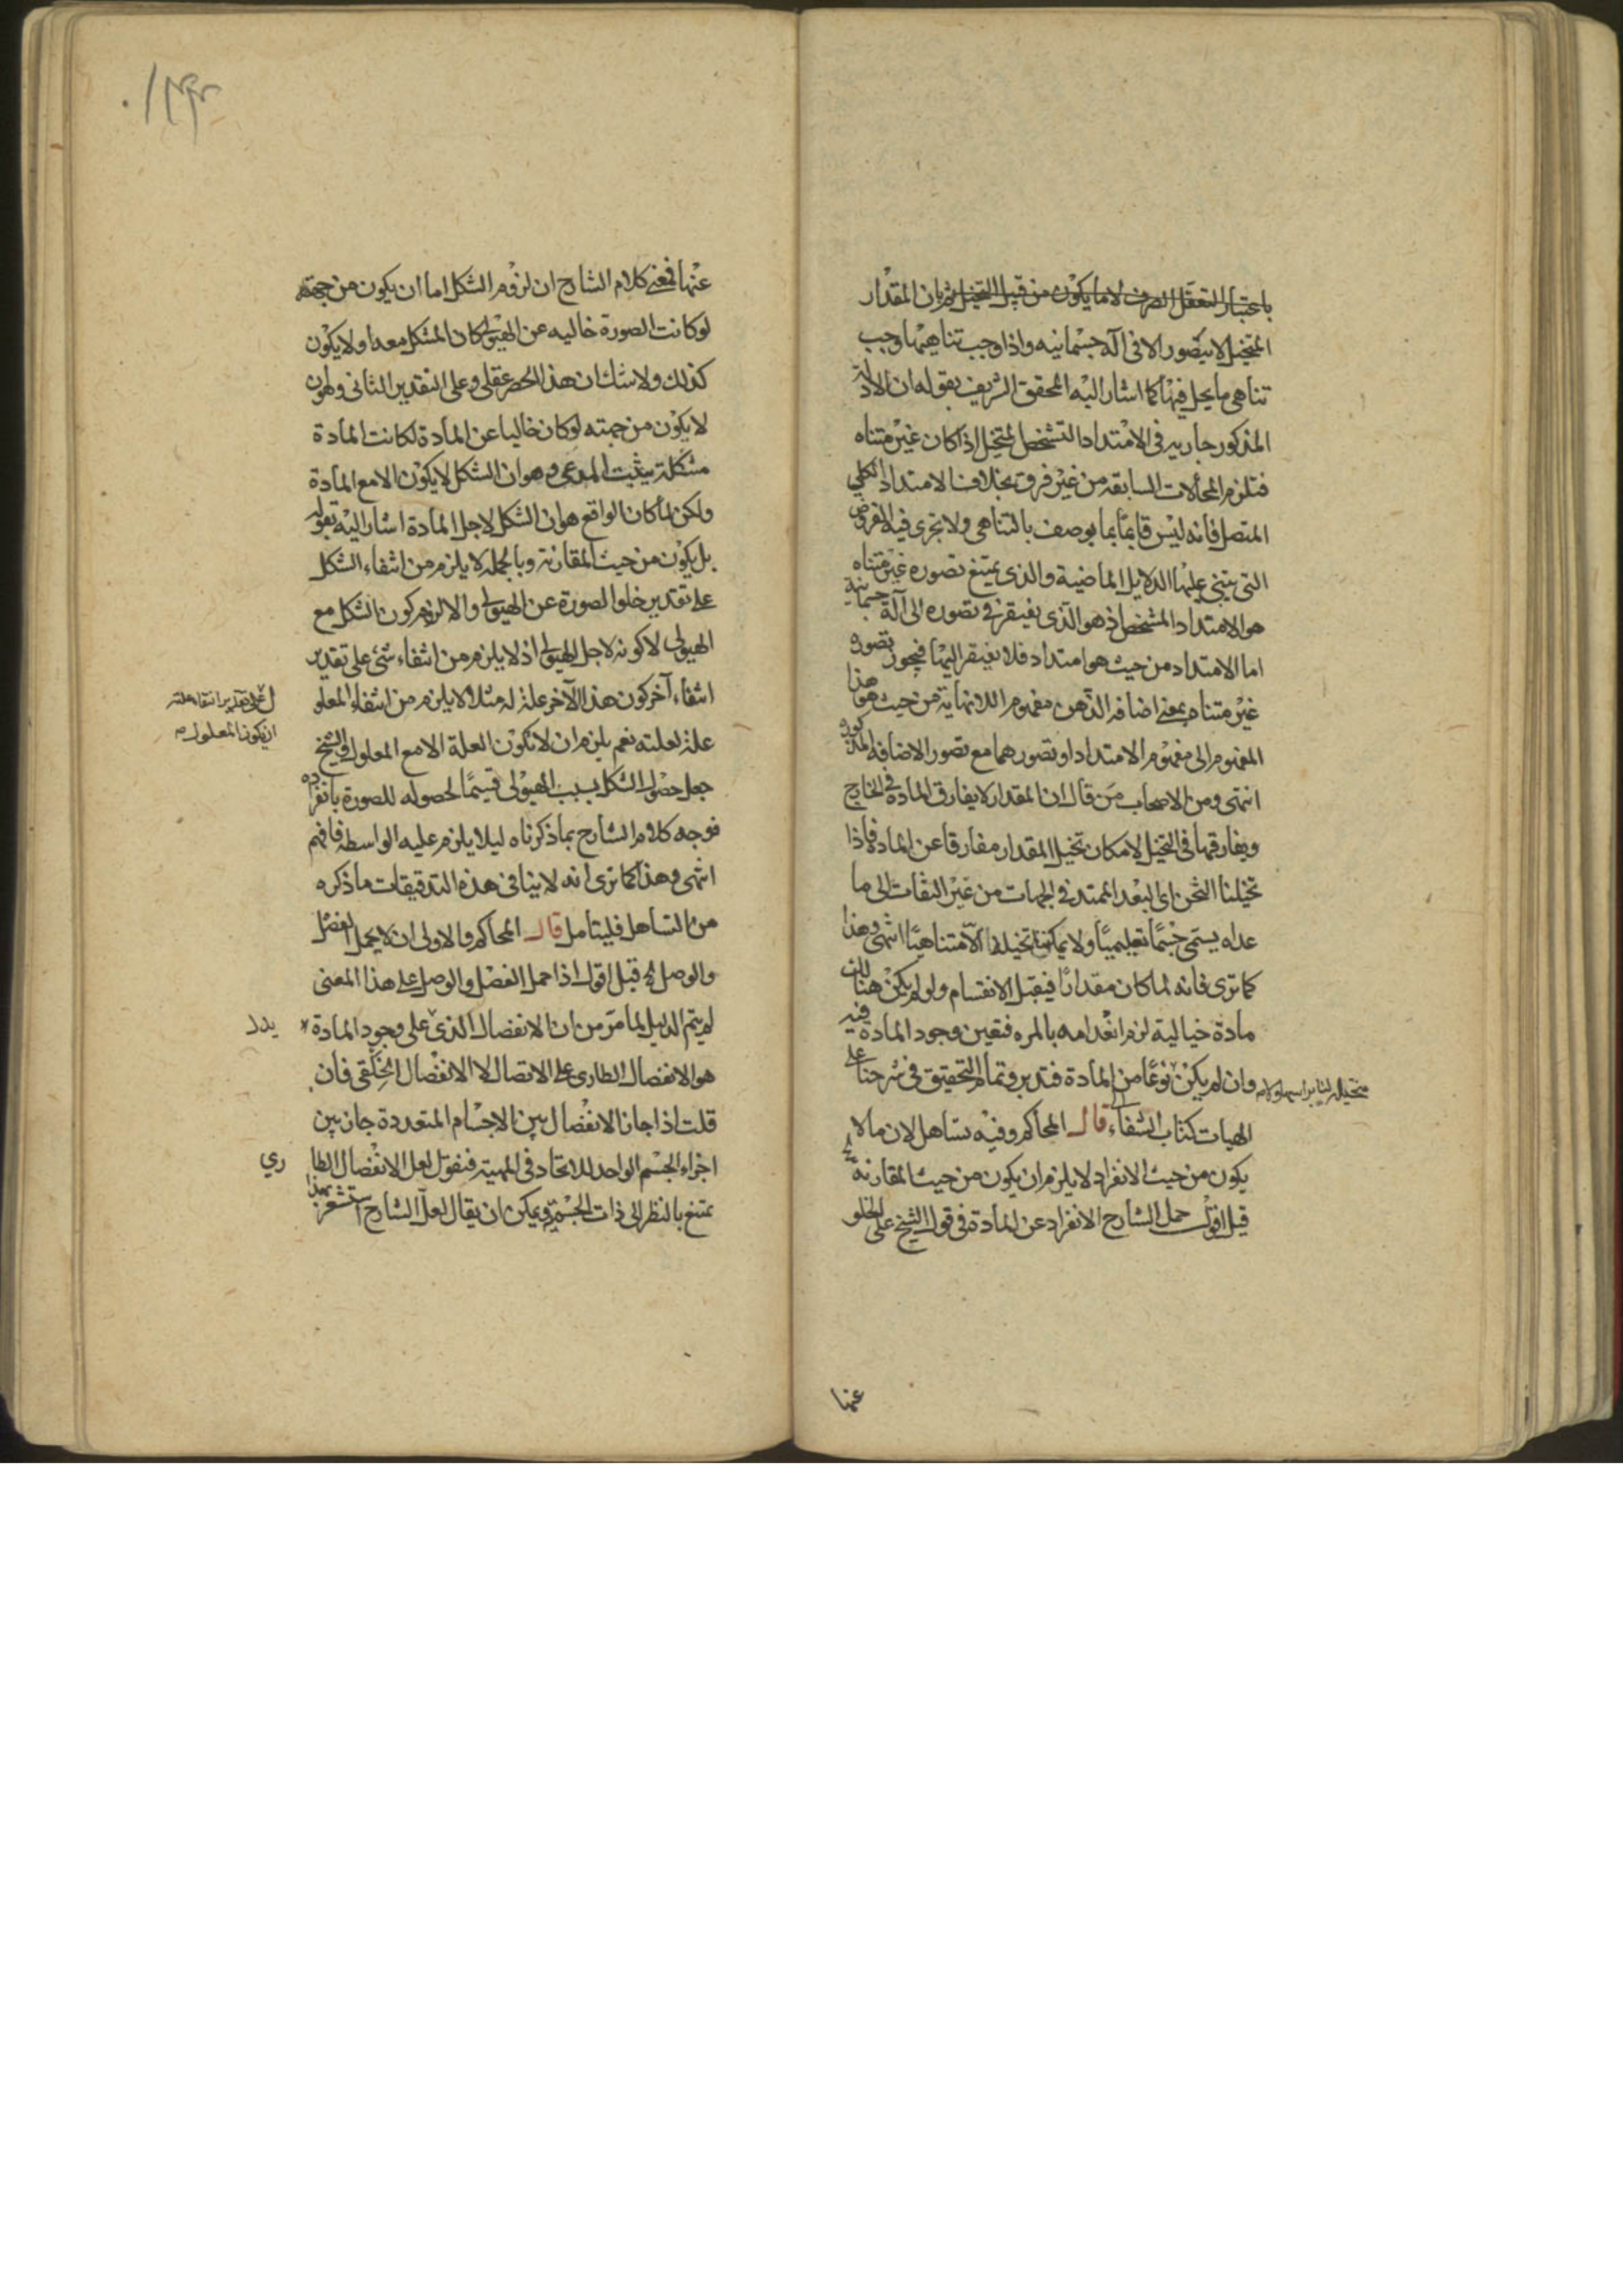 باعتبار التعقل الصرف لا ما يكون من قبل التخيل ثم بان المقدار
المتخيل لا يتصور الا فى آلة جسمانيه واذا وجب تناهيها وجب
تناهى ما يحل فيها كما اشار اليه المحقق الشريف بقوله ان الادلة
المذكور جاريه فى الامتداد التشخص لمتخيل اذا كان غير متناه
فتلزم المحالات السابقه من غير فرق بخلاف الامتداد الكلي
المتصل فانه ليس قايما بما يوصف بالتناهى ولا تجرى فيه الفروض
التى يبتنى عليها الدلايل الماضية والذى يمتنع تصوره غير متناه
هو الامتداد المشخص اذ هو الذى يفتقر فى تصوره الى آلة جسمانية
اما الامتداد من حيث هو امتداد فلا يفتقر اليها فيجوز تصوره
غير متناه بمعنى اضافه الذهن مفهوم اللانهاية من حيث هو هذا
المفهوم الى مفهوم الامتداد او تصورهما مع تصور الاضافه المذكوره
انتهى ومن الاصحاب من قال ان المقدار لا يفارق المادة فى الخارج
ويفارقها فى التخيل لامكان تخيل المقدار مفارقا عن المادة فاذا
تخيلنا الثخن اى البعد الممتد فى الجهات من غير التفات الى ما
عداه يسمى جسما تعليميا ولا يمكننا تخيله الا متناهيا انتهى وهذا
كما ترى فانه لما كان مقدارا فيقبل الانقسام ولو لم يكن هناك
مادة خيالية لزم انعدامه بالمره فتعين وجود المادة فيه
وان لم يكن نوعا من المادة فتدبر وتمام التحقيق فى شرحنا على
الهيات كتاب الشفاء قال المحاكم وفيه تساهل لان ما لا
يكون من حيث الانفراد لا يلزم ان يكون من حيث المقارنة
قيل اقول حمل الشارح الانفراد عن المادة فى قول الشيخ على الخلو
عنها
عنها فمعنى كلام الشارح ان لزوم الشكل اما ان يكون من جهته
لو كانت الصورة خاليه عن الهيولى لكان المشكل معها ولا يكون
كذلك ولا شك ان هذا الحصر عقلى وعلى التقدير الثانى وهو ان
لا يكون من جهته لو كان خاليا عن المادة لكانت المادة
مشكلة يثبت المدعى وهو ان الشكل لا يكون الا مع المادة
ولكن لما كان الواقع هو ان الشكل لاجل المادة اشار اليه بقوله
بل يكون من حيث المقارنة وبالجمله لا يلزم من انتفاء الشكل
على تقدير خلو الصورة عن الهيولى والا لزم كون الشكل مع
الهيولى لا كونه لاجل الهيولى اذ لا يلزم من انتفاء شئ على تقدير
انتفاء آخر كون هذا الآخر علة له مثلا لا يلزم من انتفاء المعلو
ل على تقدير انتفاء علته
ان يكون المعلول
علة لعلته نعم يلزم ان لا تكون العلة الا مع المعلول والشيخ
جعل حصول الشكل بسبب الهيولى قسيما لحصوله للصورة بانفراده
فوجه كلام الشارح بما ذكرناه ليلا يلزم عليه الواسطه فافهم
انتهى وهذا كما ترى انه لا ينافى هذه التدقيقات ما ذكره
من التساهل فليتامل قال المحاكم والاولى ان لا يحمل الفصل
والوصل الخ قيل اقول اذا حمل الفصل والوصل على هذا المعنى
لم يتم الدليل لما مر من ان الانفصال الذى على وجود المادة
يدل
هو الانفصال الطارى على الاتصال لا الانفصال الخلقى فان
قلت اذا جاز الانفصال بين الاجسام المتعددة جاز بين
اجزاء الجسم الواحد للاتحاد فى المهية فنقول لعل الانفصال الطا
ري
يمتنع بالنظر الى ذات الجسمية ويمكن ان يقال لعل الشارح استشعر بهذا